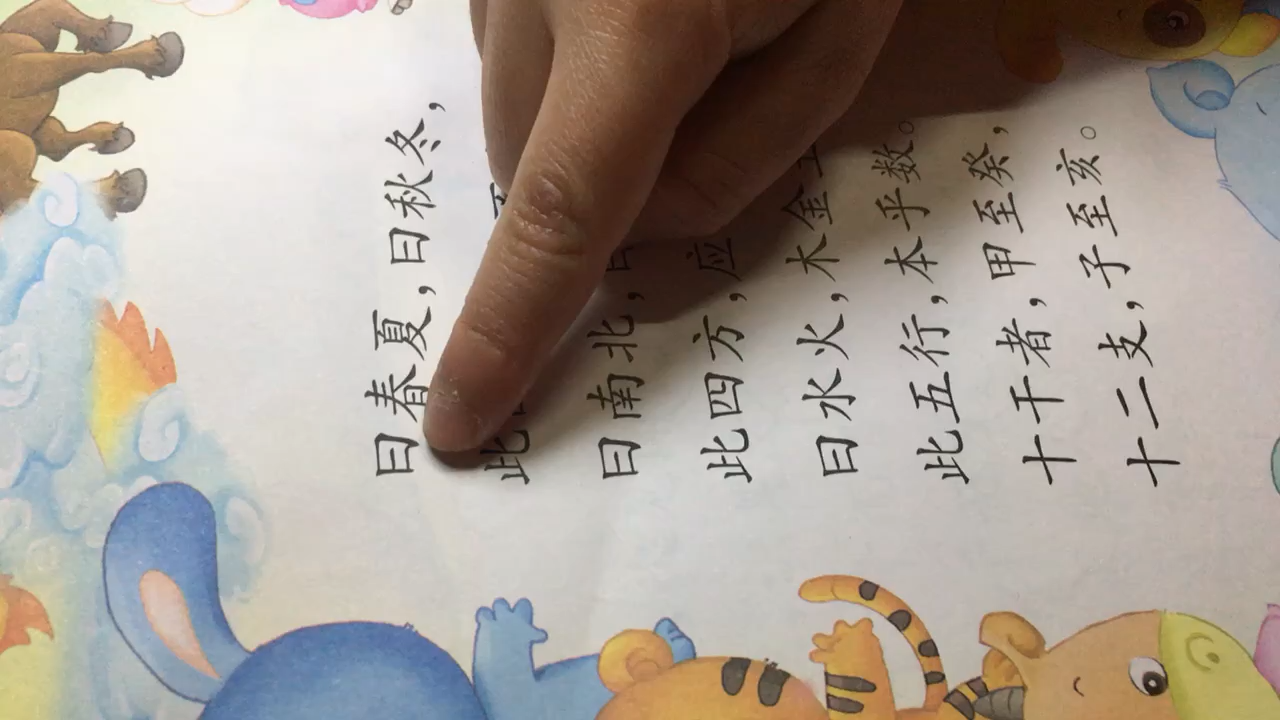 曰春夏，曰秋冬，
此
曰南北，
此四方，应
曰水火，木金
此五行，本乎数。
十干者，甲至癸，
十二支，子至亥。